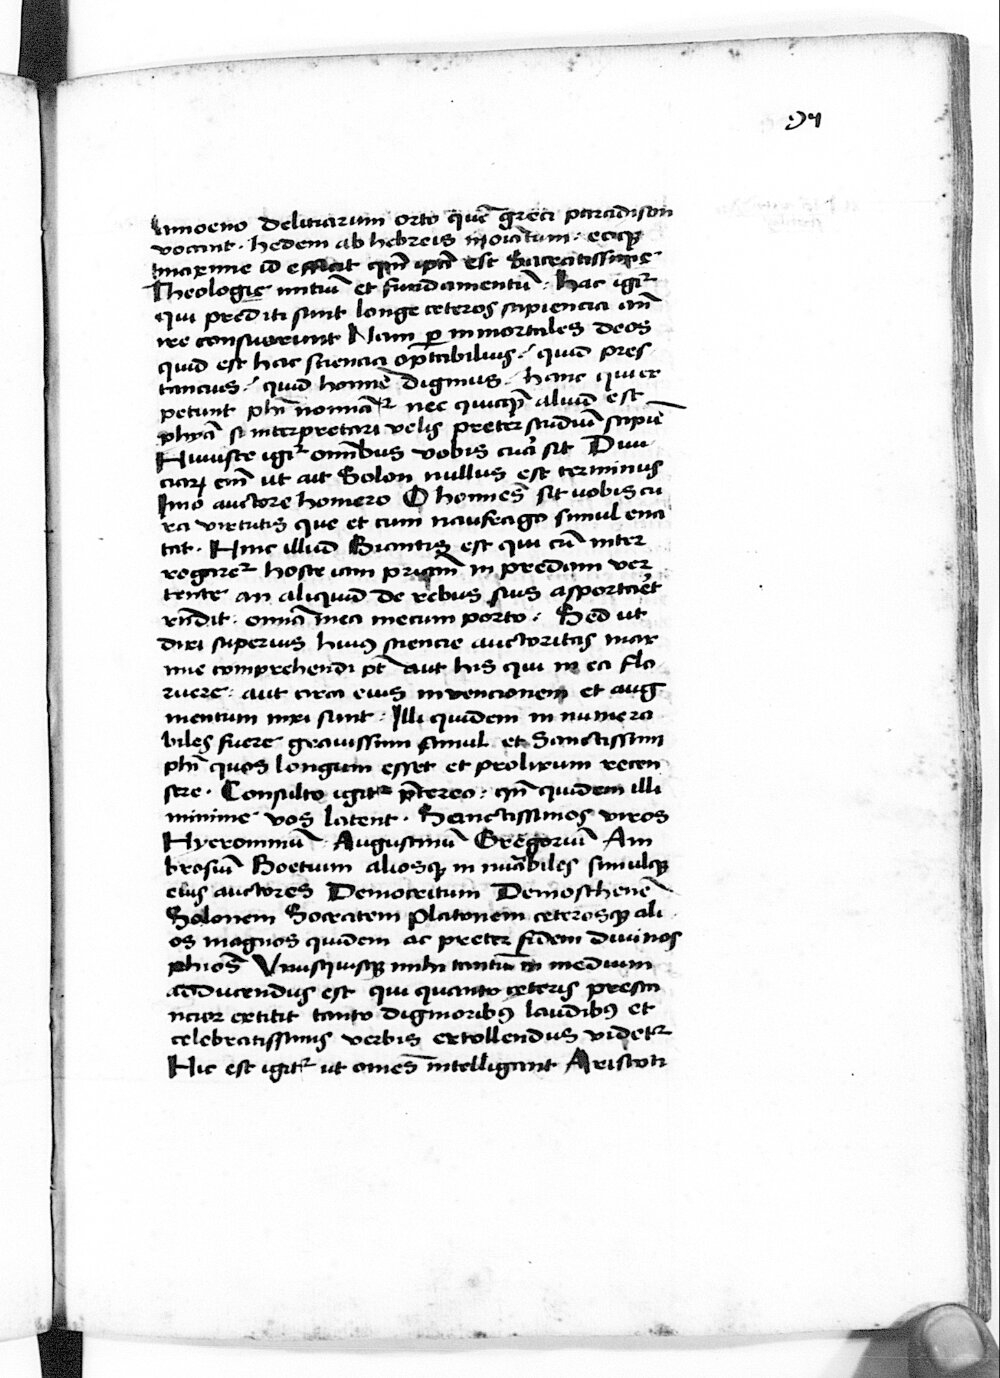 91
amoeno delitiarum orto quē greci paradison
vocant · hedem ab hebreis
maxime id efficit est Sacratissimę
Theologię initiū et fundamentū · Hac igiᷣ
qui prediti sunt longe ceteros sapiencia
ire consueverunt Nam ꝑ inmortales deos
quid est hac sciencia optabilius / quid pres
tancius / quid homīe dignius / hanc qui ex
petunt phi nec quicq̄ aliud est
phīa si interpretari velis preter studiū sapiē
Huiusce igiᷣ omībus vobis cura sit Divi
ciaꝝ em̄ ut ait Solon nullus est terminus
Imo auctore homero O homīes sit vobis cu
ra virtutis que et cum naufrago simul ena
tat · Hinc illud Biantis est qui cū inter
rogareᷣ hoste iam in predam ver
tente an aliquid de rebus suis asportaret
rn̄dit · omīa mea mecum porto · Sed ut
dixi superius huiꝰ sciencie auctoritas max
ime comprehendi pt̄ aut his qui in ea flo
ruere · aut circa eius invencionem et aug
mentum nixi sunt · Illi quidem innumera
biles fuere gravissimi simul et Sanctissimi
phi quos longum esset et prolixum recen
sere · Consulto igitᷣ p̄tereo · qn̄ quidem illi
minime vos latent · Sanctissimos viros
Hyeronimū Augustinū Gregoriū Am
brosiū Boetium aliosqꝫ innūabiles simulqꝫ
eius auctores Democritum Demosthenē
Solonem Socratem Platonem ceterosqꝫ ali
os magnos quidem ac preter fidem divinos
phōs Vnusquisqꝫ mihi tantū in medium
adducendus est qui quanto ceteris presta
ncior extitit tanto dignioribꝰ laudibꝰ et
celebratissimis verbis extollendus videtᷣ
Hic est igitᷣ ut omēs intelligant Aristoti